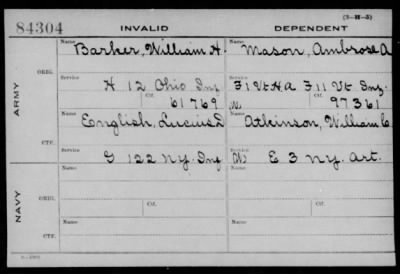 (3-H-5)
84304 INVALID DEPENDENT
Name Barker, William H. Name Mason, Ambrose A.
ARMY
ORIG.
Service H 12 Ohio Inf Service F 1 Vt. H.A F 11 Vt. Inf.
Ctf. 61769 W. Ctf. 97361
CTF.
Name English, Lucius D Name Atkinson, William C
Service G 122 N.Y. Inf Service W. E 3 N.Y. Art.
NAVY
ORIG.
Name Name
Service Ctf. Service Ctf.
CTF.
Name Name